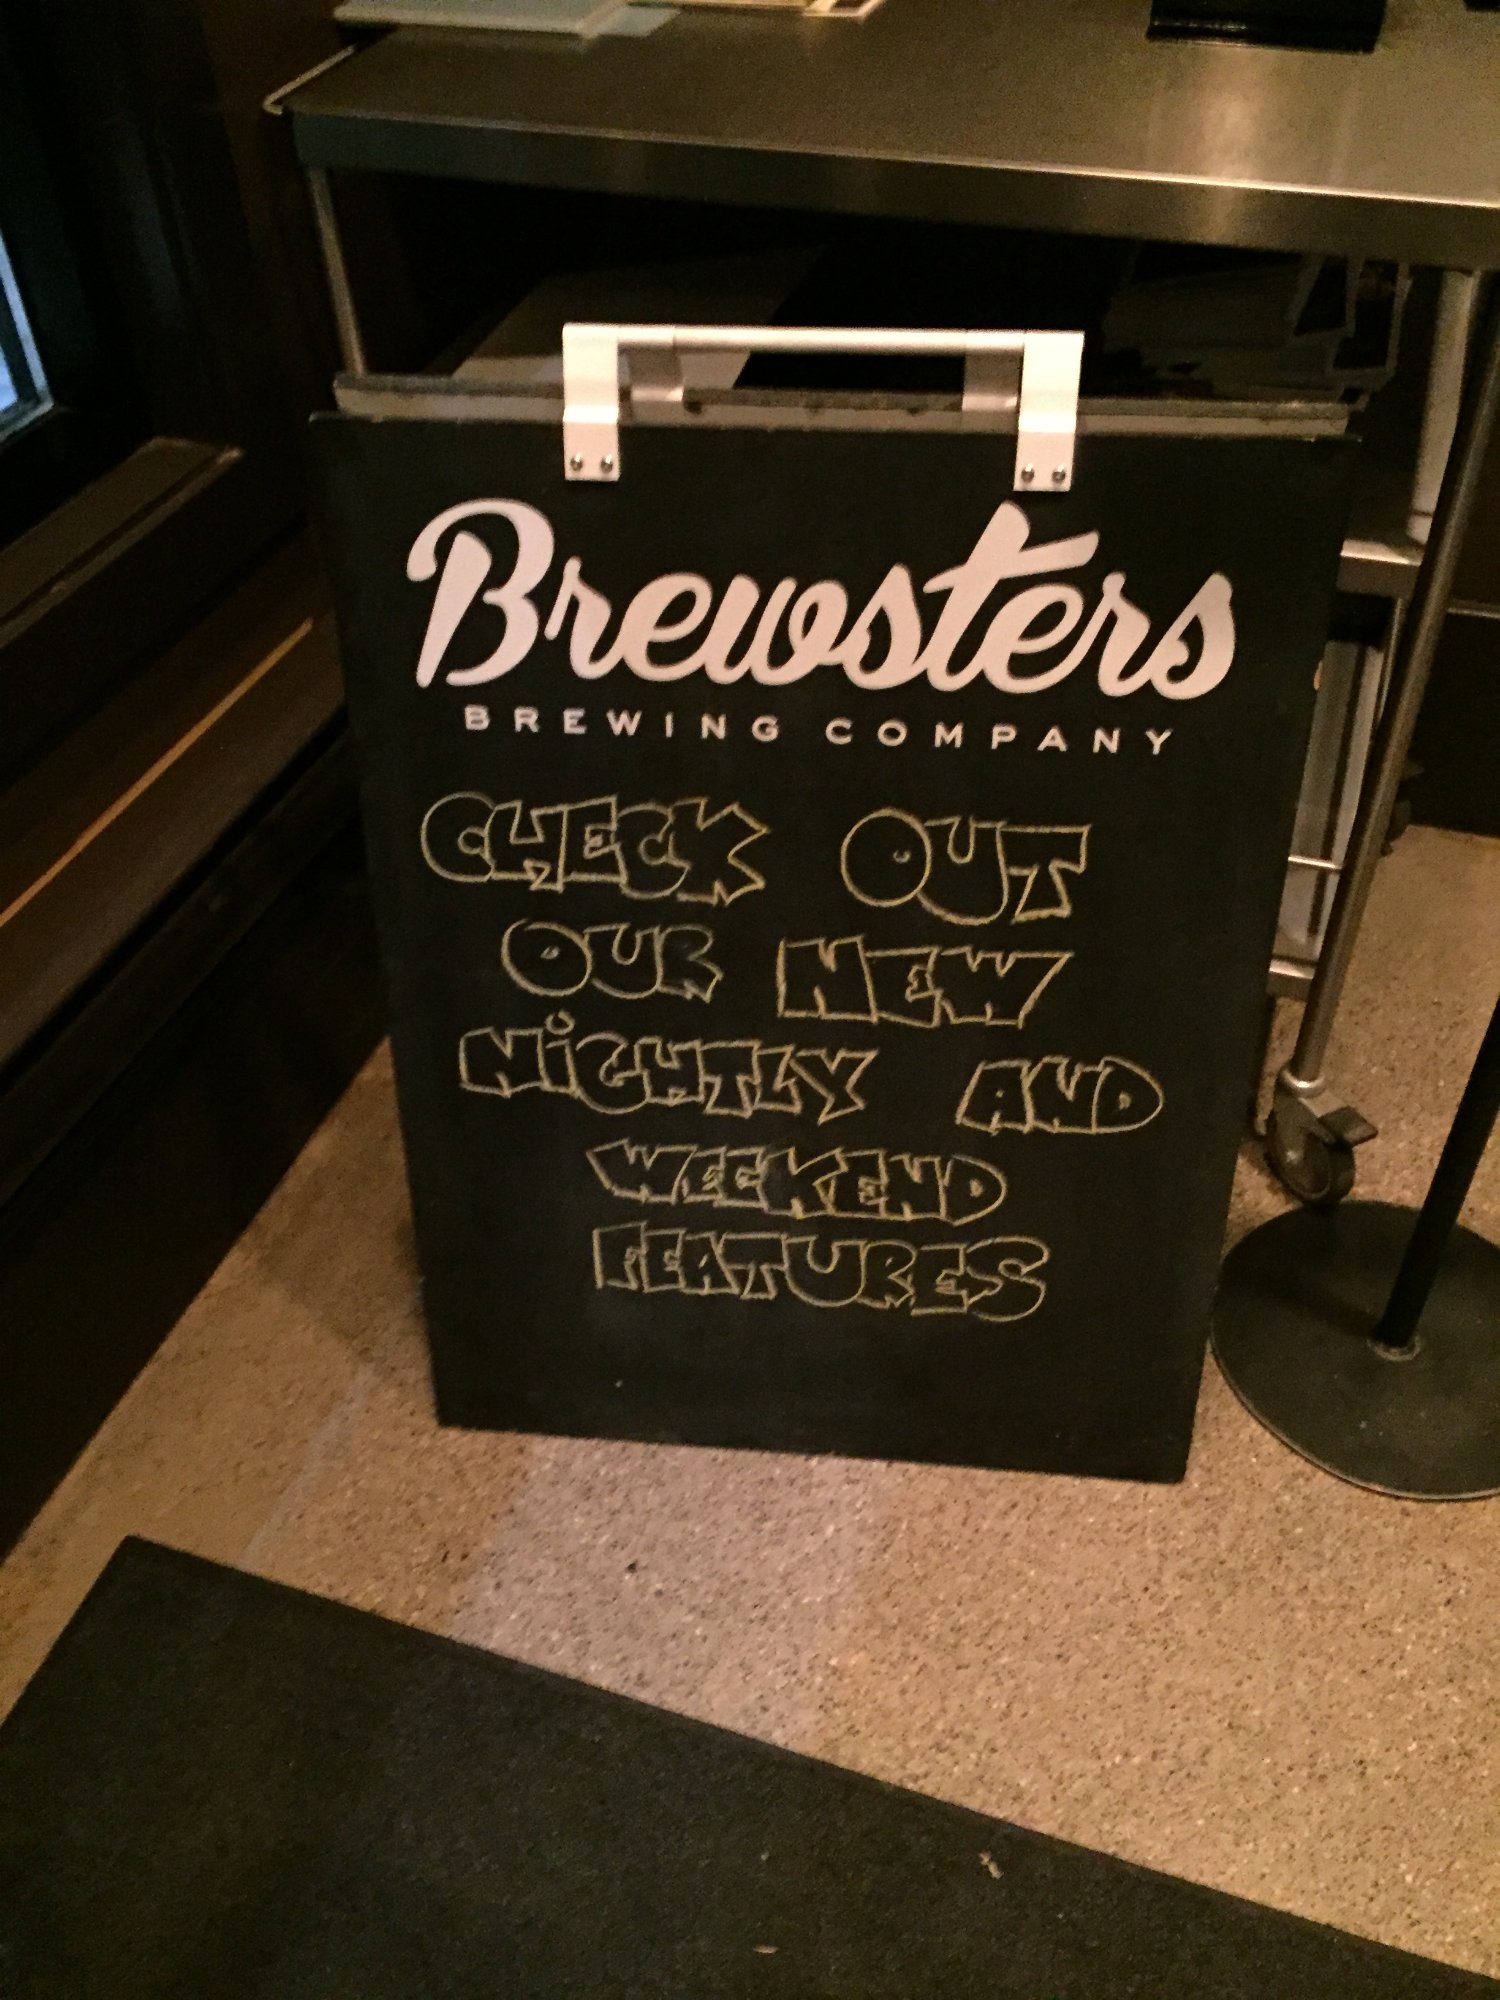 Brewsters
BREWING COMPANY
CHECK OUT
OUR NEW
NiGHTLY AND
WEEKEND
FEATURES